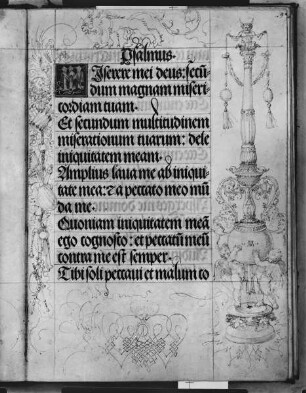 Psalmus.
Miserere mei deus: secū
dum magnam miseri
cordiam tuam.
Et secundum multitudinem
miserationum tuarum: dele
iniquitatem meam.
Amplius laua me ab iniqui
tate mea: & a peccato meo mū
da me.
Quoniam iniquitatem meā
ego cognosco: et peccatū meū
contra me est semper.
Tibi soli peccaui et malum co